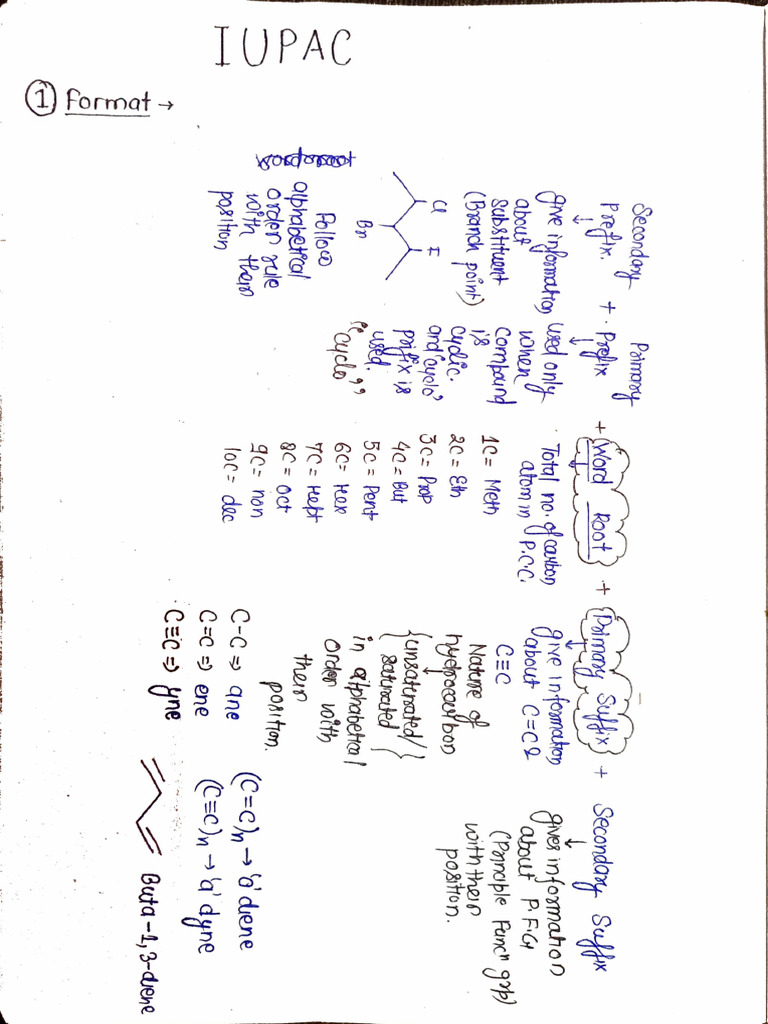 IUPAC
① Format →
Secondary Prefix. + Primary Prefix + Word Root + Primary Suffix + Secondary Suffix
give information
about
substituent
(Branch point)
Cl F
Br
Follow
alphabetical
order rule
with their
position
used only
when
compound
is
cyclic.
and 'cyclo'
prifix is
used.
"cyclo"
Total no. of carbon
atom in P.C.C.
1C = Meth
2C = Eth
3C = Prop
4C = But
5C = Pent
6C = Hex
7C = Hept
8C = Oct
9C = non
10C = dec
give information
about C=C &
C≡C
Nature of
hydrocarbon
{unsaturated/
saturated}
in alphabetical
order with
their
position.
C-C ⇒ ane
C=C ⇒ ene
C≡C ⇒ yne
gives information
about P.F.G
(Principle Funcn grp)
with their
position.
(C=C)n → 'a' diene
(C≡C)n → 'a' dyne
Buta-1,3-diene